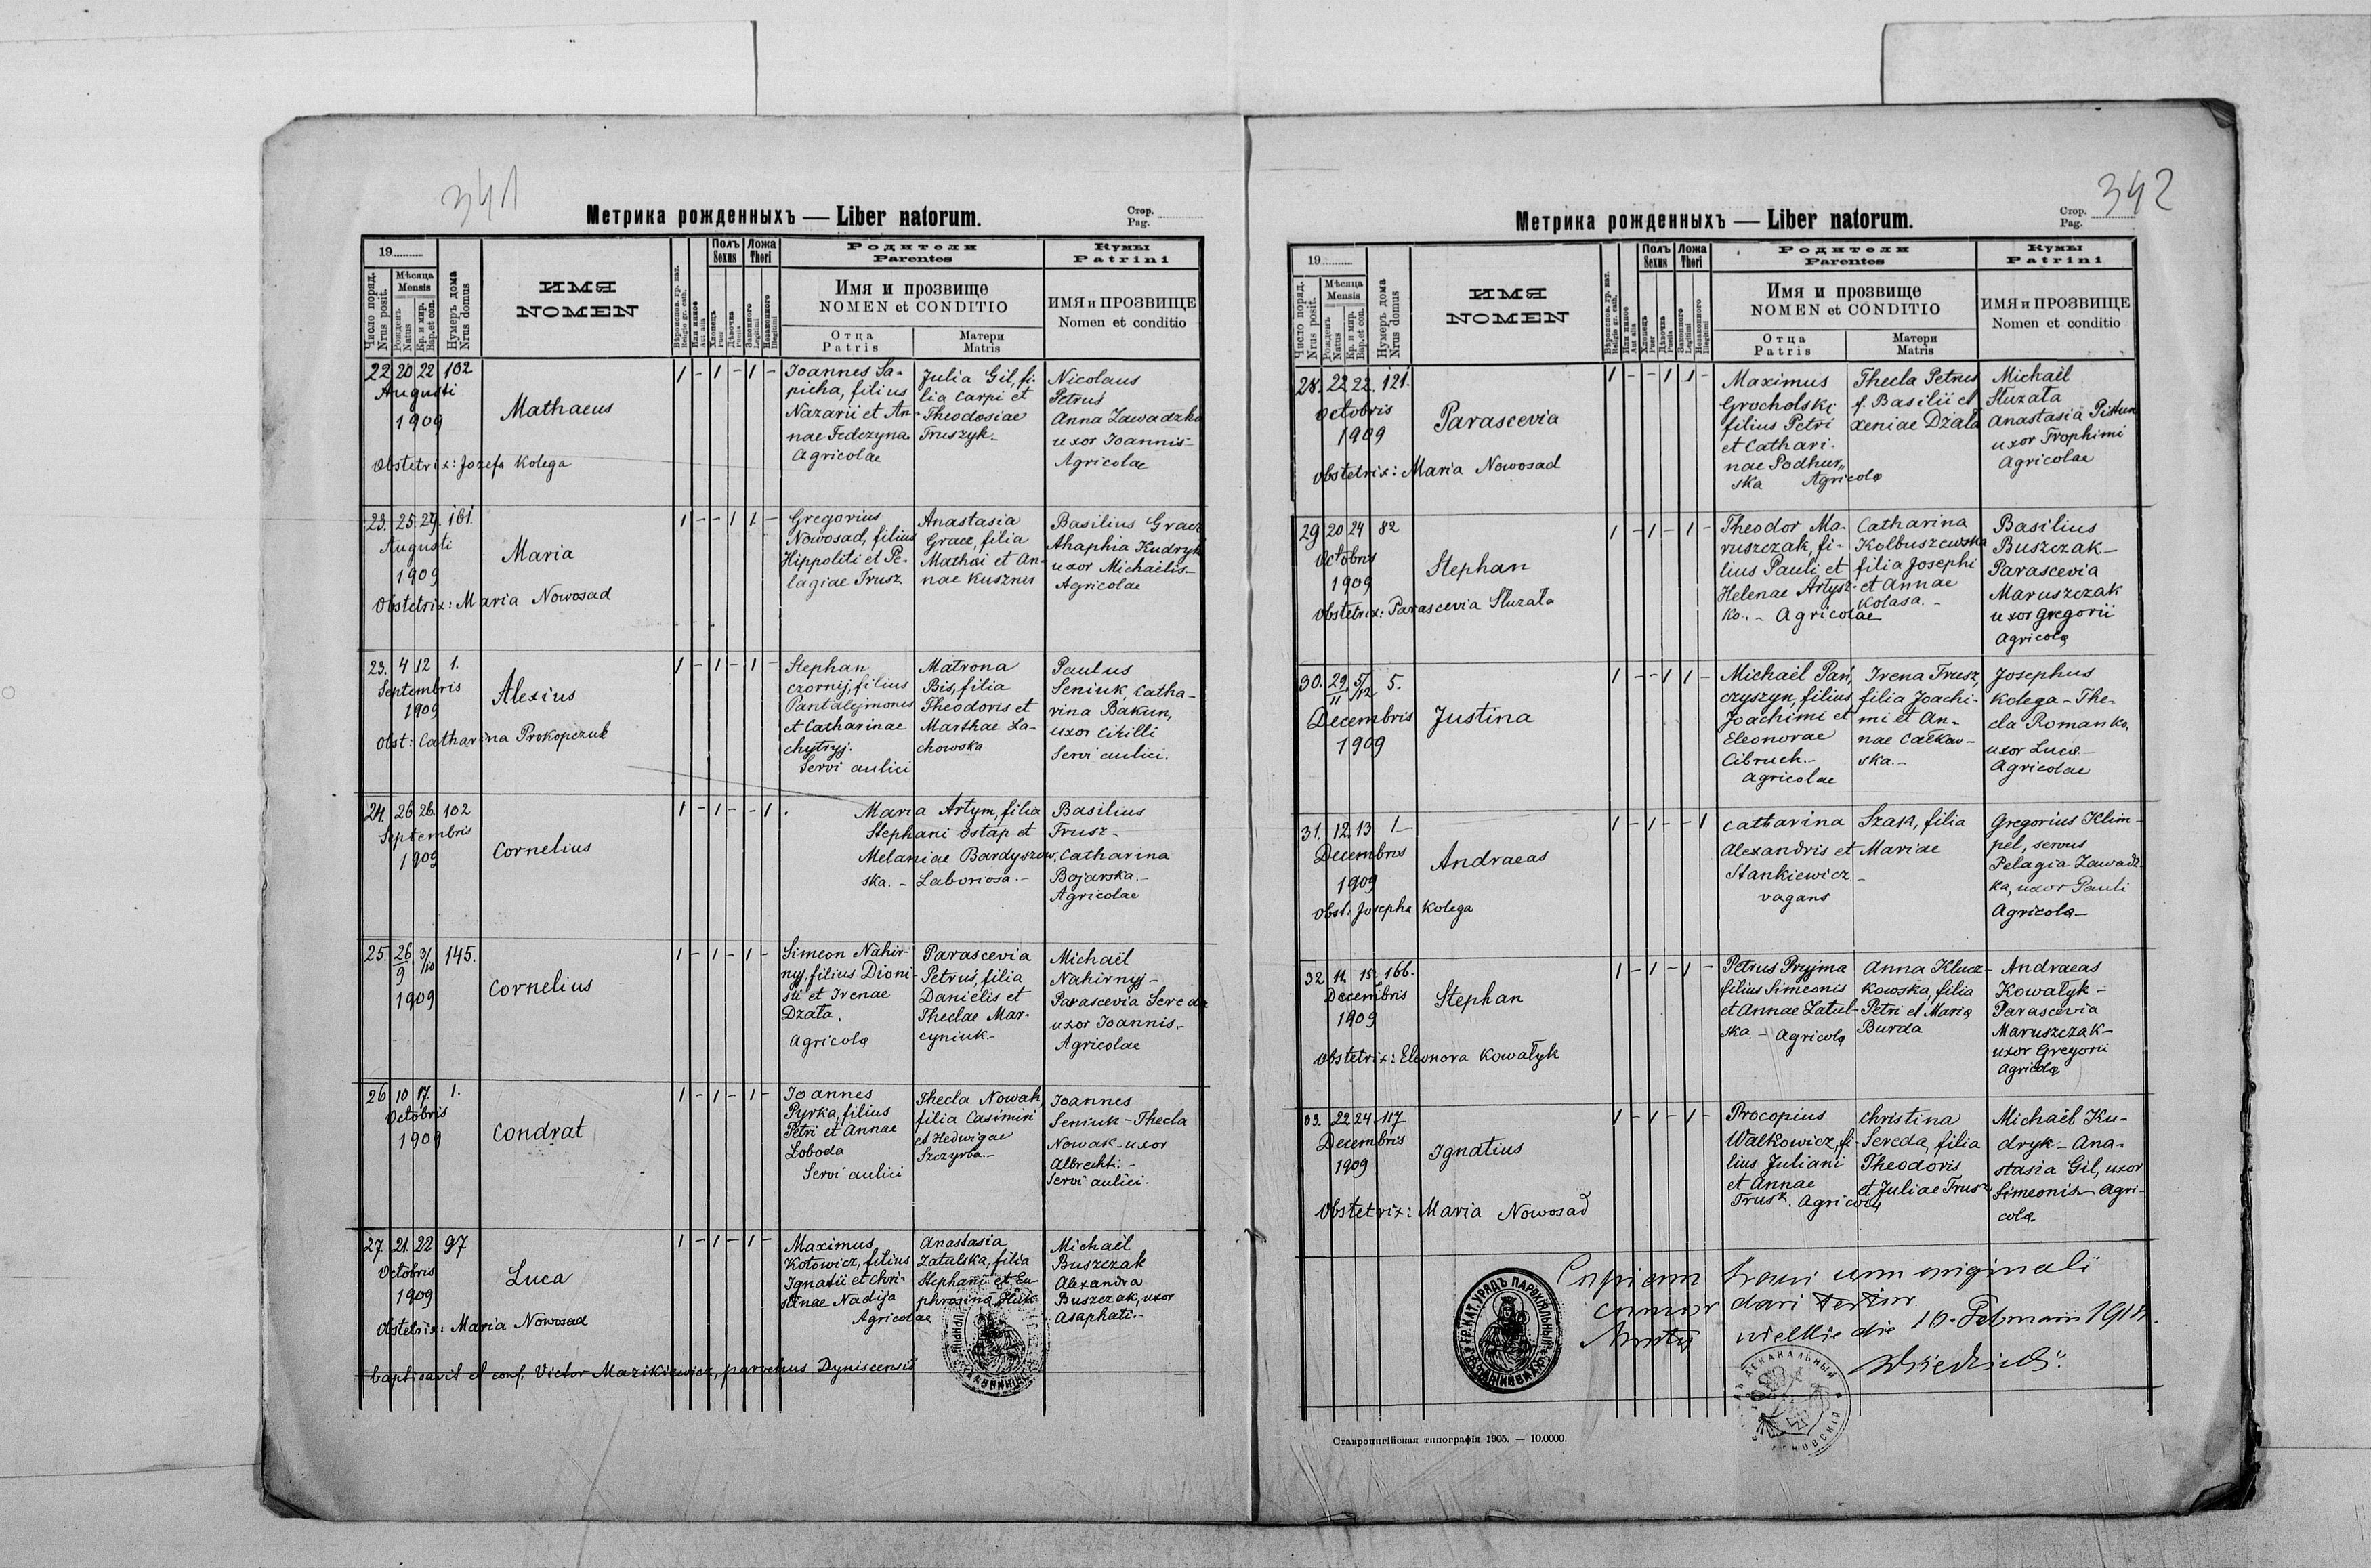 341
Метрика рожденныхъ — Liber natorum.
Стор.
Pag.
19
Число поряд.
Nrus posit.
Мѣсяца
Mensis
Рожденъ
Natus
Кр. и мир.
Bap. et con.
Нумеръ дома
Nrus domus
ИМЯ
NOMEN
Вѣроиспов. гр. кат.
Religio gr. cath.
Или инное
Aut alia
Полъ
Sexus
Хлопецъ
Puer
Дѣвочка
Puella
Ложа
Thori
Законного
Legitimi
Незаконного
Illegitimi
Родители
Parentes
Имя и прозвище
NOMEN et CONDITIO
Отца
Patris
Матери
Matris
Кумы
Patrini
ИМЯ и ПРОЗВИЩЕ
Nomen et conditio
22 20 22 102
Augusti
1909
Mathaeus
1 - 1 - 1 -
Joannes Sa-
picha, filius
Nazarii et An-
nae Fedczyna
Agricolae
Julia Gil, fi-
lia Carpi et
Theodosiae
Truszyk.-
Nicolaus
Petrus
Anna Zawadzka
uxor Joannis-
Agricolae
Obstetrix: Jozefa Kolega
23. 25 29. 161.
Augusti
1909
Maria
1 - - 1 1 -
Gregorius
Nowosad, filius
Hippoliti et Pe-
lagiae Trusz
Anastasia
Gracz, filia
Mathai et An-
nae Kusznir
Basilius Gracz
Ahaphia Kudryk
uxor Michaelis-
Agricolae
Obstetrix: Maria Nowosad
23. 4 12 1.
Septembris
1909
Alexius
1 - 1 - 1 -
Stephan
Czornij, filius
Pantalejmonis
et Catharinae
Chytryj.
Servi aulici
Matrona
Bis, filia
Theodoris et
Marthae La-
chowska
Paulus
Seniuk, Catha-
rina Bakun,
uxor Cirilli
Servi aulici.
Obst: Catharina Prokopczuk
24. 26 26. 102
Septembris
1909
Cornelius
1 - 1 - - 1.
Maria Artym, filia
Stephani Ostap et
Melaniae Bardyszew
ska. - Laboriosa.-
Basilius
Trusz-
Catharina
Bojarska.-
Agricolae
25. 26/9 3/10 145.
1909
Cornelius
1 - 1 - 1 -
Simeon Nahir-
nyj, filius Dioni-
sii et Irenae
Dzata.
Agricola
Parascevia
Petrus, filia
Danielis et
Theclae Mar-
cyniuk-
Michaël
Nahirnyj-
Parascevia Sereda
uxor Joannis.-
Agricolae
26 10 17. 1.
Octobris
1909
Condrat
1 - 1 - 1 -
Joannes
Pyrka, filius
Petri et Annae
Loboda
Servi aulici
Thecla Nowak,
filia Casimiri
et Hedwigae
Szczyrba.-
Joannes
Seniuk - Thecla
Nowak - uxor
Albrechti.-
Servi aulici.
27. 21. 22 97
Octobris
1909
Luca
1 - 1 - 1 -
Maximus
Kotowicz, filius
Ignatii et Chri-
stinae Nadija
Agricolae
Anastasia
Zatulska, filia
Stephani et Eu-
phrosina Huk
Michaël
Buszczak
Alexandra
Buszczak, uxor
Asaphati.-
Obstetrix: Maria Nowosad
baptisavit et conf. Victor Mazikiewicz, parochus Dyniscensis
342
Метрика рожденныхъ — Liber natorum.
Стор.
Pag.
19
Число поряд.
Nrus posit.
Мѣсяца
Mensis
Рожденъ
Natus
Кр. и мир.
Bap. et con.
Нумеръ дома
Nrus domus
ИМЯ
NOMEN
Вѣроиспов. гр. кат.
Religio gr. cath.
Или инное
Aut alia
Полъ
Sexus
Хлопецъ
Puer
Дѣвочка
Puella
Ложа
Thori
Законного
Legitimi
Незаконного
Illegitimi
Родители
Parentes
Имя и прозвище
NOMEN et CONDITIO
Отца
Patris
Матери
Matris
Кумы
Patrini
ИМЯ и ПРОЗВИЩЕ
Nomen et conditio
28. 22 22. 121.
Octobris
1909
Parascevia
1 - - 1 1 -
Maximus
Grocholski
filius Petri
et Cathari-
nae Podhur„
ska Agricola
Thecla Petrus
f. Basilii et
Xeniae Dzała
Michail
Słuzała
Anastasia Pistun
uxor Trophimi
Agricolae
Obstetrix: Maria Nowosad
29 20 24 82
Octobris
1909
Stephan
1 - 1 - 1 -
Theodor Ma-
ruszczak, fi-
lius Pauli et
Helenae Artysz-
ko. - Agricolae
Catharina
Kolbuszewska
filia Josephi
et Annae
Kolasa. -
Basilius
Buszczak-
Parascevia
Maruszczak
uxor Gregorii
Agricola
Obstetrix: Parascevia Słuzała
30. 29/11 5/12 5.
Decembris
1909
Justina
1 - - 1 1 -
Michaël Pań,
czyszyn, filius
Joachimi et
Eleonorae
Cibruch.-
Agricolae
Irena Trusz,
filia Joachi-
mi et An-
nae Całkow-
ska.-
Josephus
Kolega - The-
cla Romanko,
uxor Lucae-
Agricolae
31. 12. 13 1-
Decembris
1909
Andraeas
1 - 1 - - 1
Catharina Szak, filia
Alexandris et Mariae
Stankiewicz-
vagans
Gregorius Klim-
pel, servus
Pelagia Zawadz
ka, uxor Pauli
Agricola-
Obst. Josepha Kolega
32 11. 15. 166.
Decembris
1909
Stephan
1 - 1 - 1 -
Petrus Pryjma
filius Simeonis
et Annae Zatul-
ska. - Agricola
Anna Klucz-
kowska, filia
Petri et Maria
Burda
Andraeas
Kowałyk-
Parascevia
Maruszczak-
uxor Gregorii
Agricola
Obstetrix: Eleonora Kowałyk
33. 22 24. 117
Decembris
1909
Ignatius
1 - 1 - 1 -
Procopius
Walkowicz, fi-
lius Juliani
et Annae
Trusz. Agricola
Christina
Sereda, filia
Theodoris
et Juliae Trusz
Michaël Ku-
dryk - Ana-
stasia Gil, uxor
Simeonis- Agri-
cola.
Obstetrix: Maria Nowosad
originali
die 10. Februarii 191
Ставропигійская типографія 1905. — 10.0000.